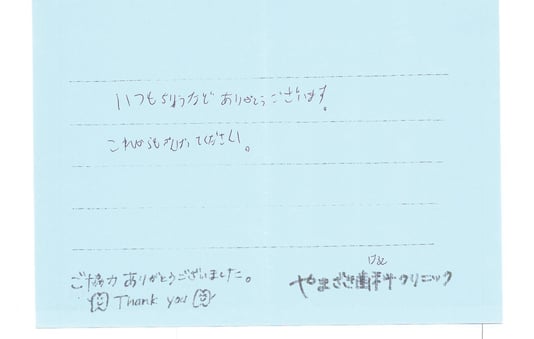 いつも ありがとうございます。
これからもがんばってください。
ご協力 ありがとうございました。
Thank you
やまざき歯科クリニック